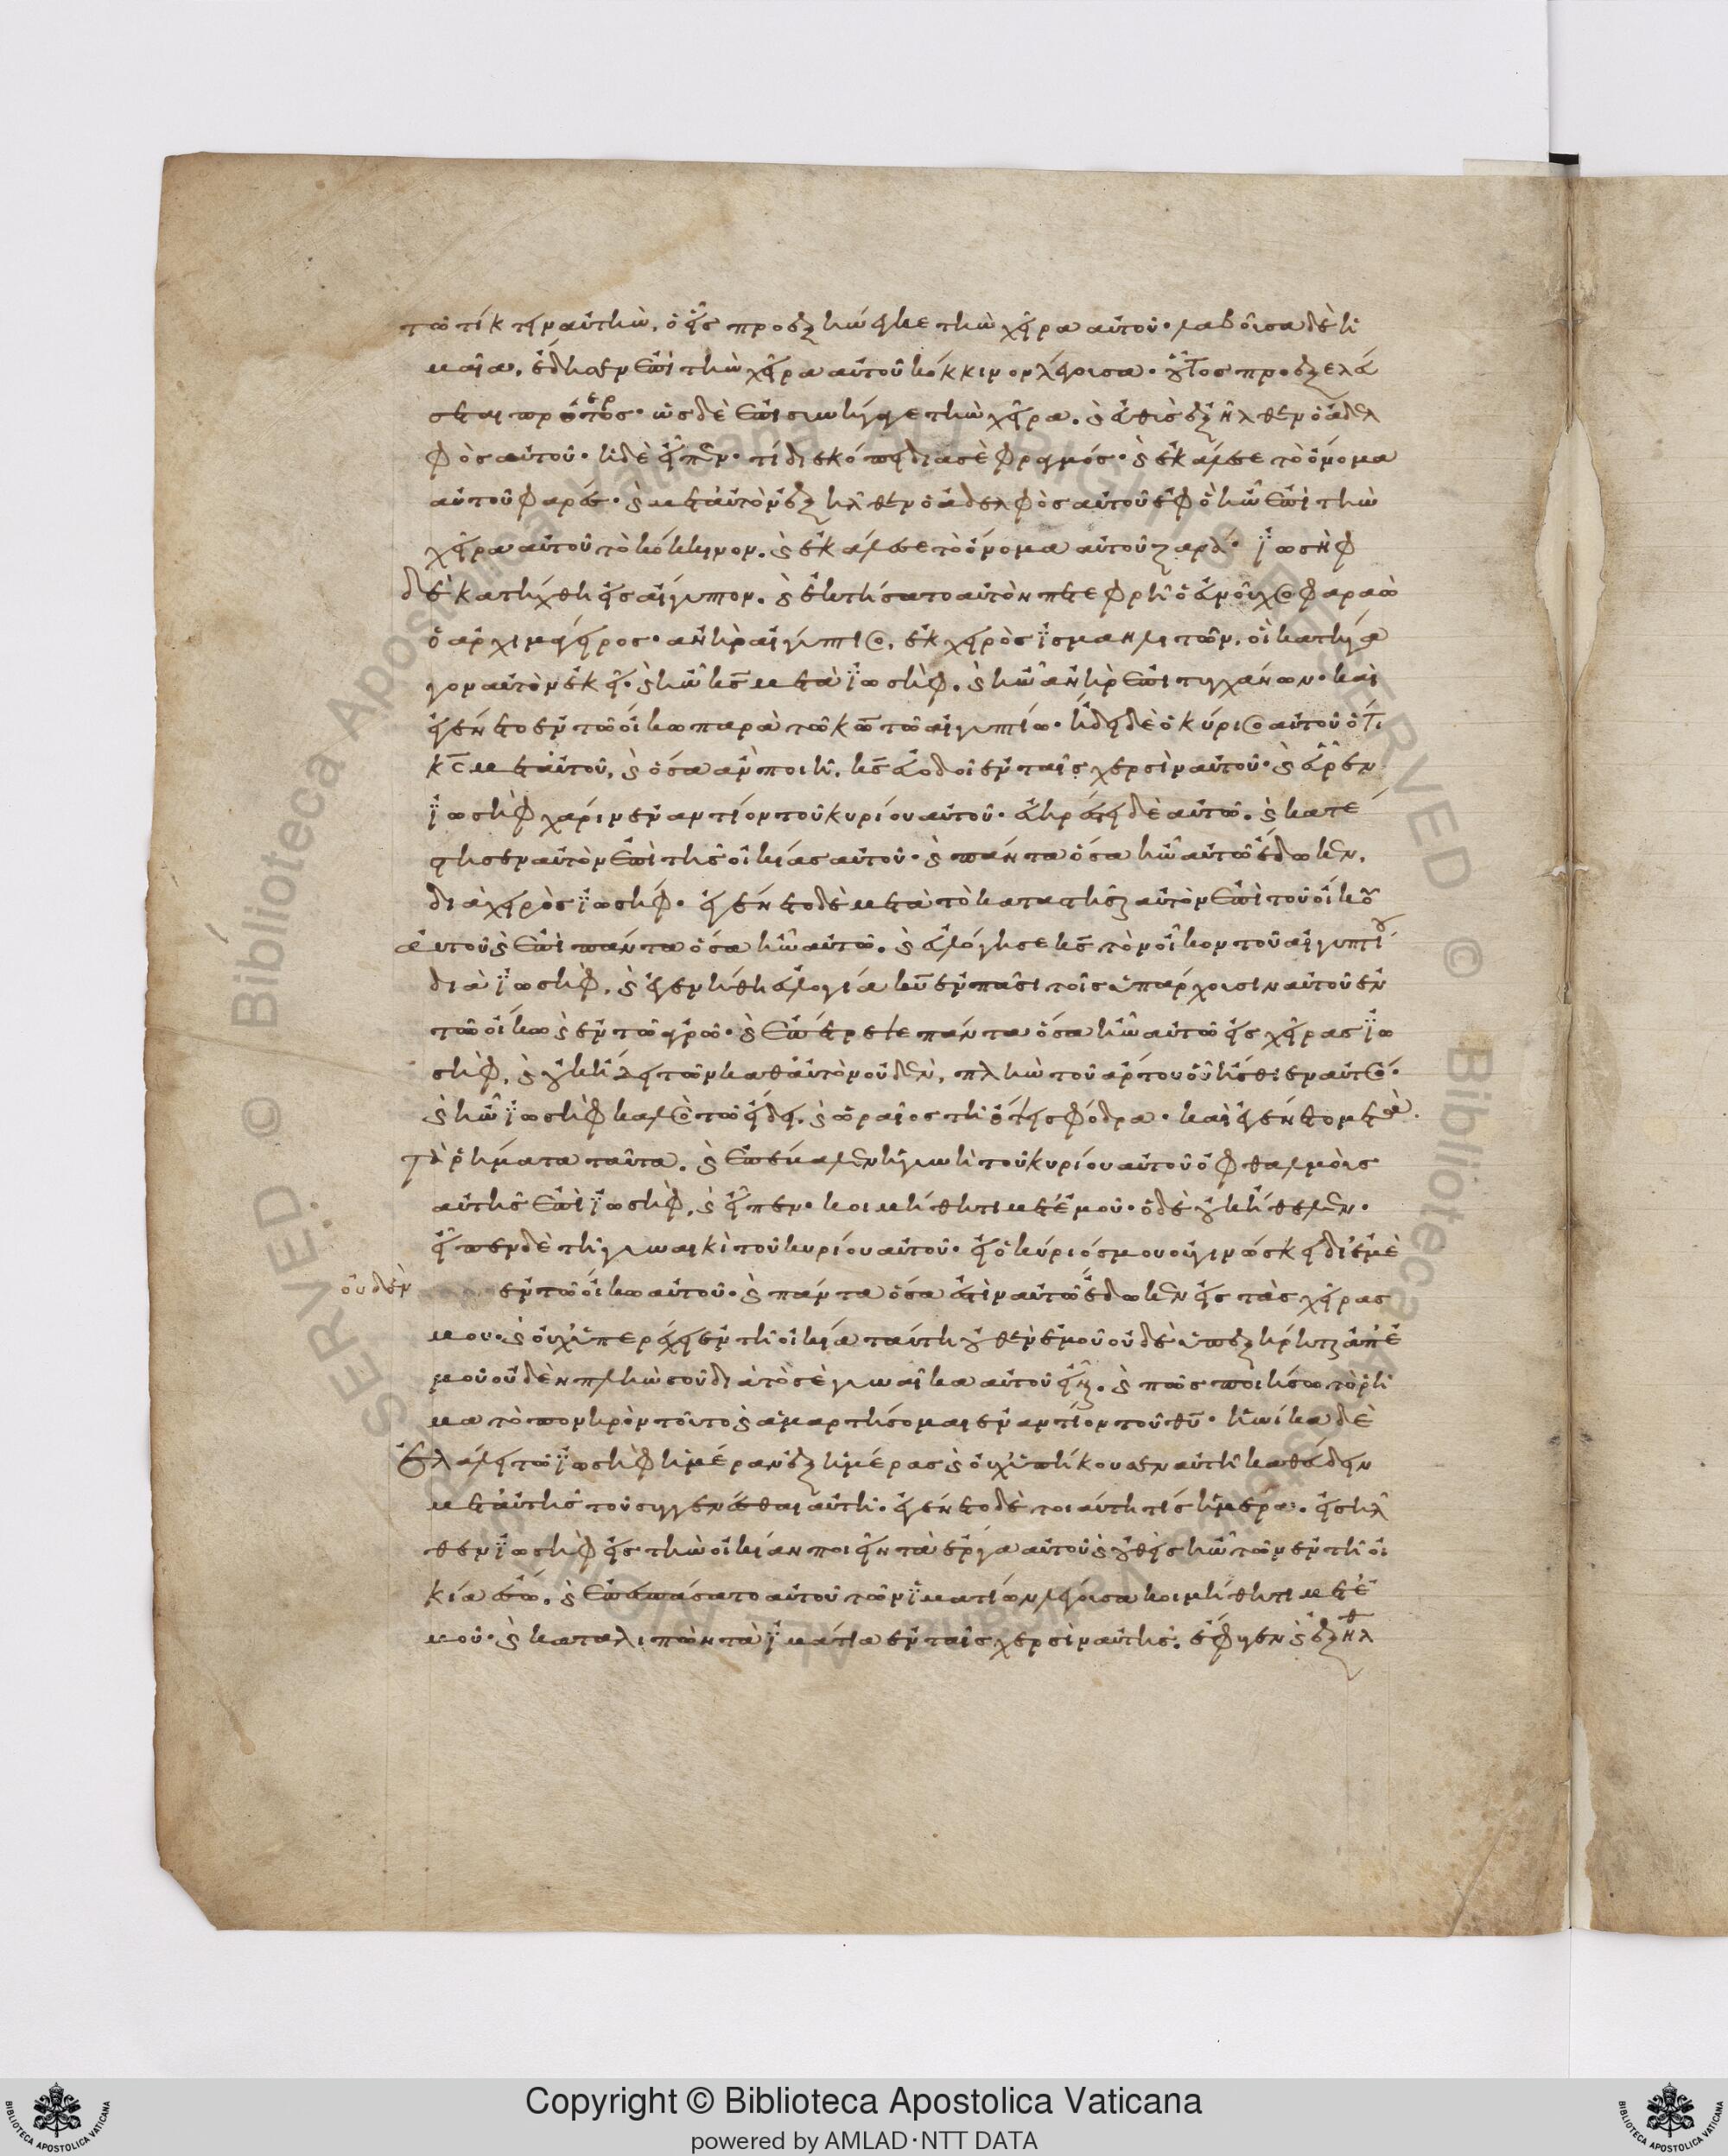 τῶ τίκτειν αὐτὴν, ὁ εἷς προεξήνεγκε τὴν χεῖρα αὐτοῦ· λαβοῦσα δὲ ἡ
μαῖα, ἔδησεν ἐπὶ τὴν χεῖρα αὐτοῦ κόκκινον λέγουσα· οὗτος προεξελεύ
σεται πρότερος· ὡς δὲ ἐπισυνήγαγε τὴν χεῖρα. καὶ εὐθὺς ἐξῆλθεν ὁ ἀδελ
φὸς αὐτοῦ· ἡ δὲ εἶπεν· τί διεκόπη διὰ σὲ φραγμός· καὶ ἐκάλεσε τὸ ὄνομα
αὐτοῦ φαρὲς· καὶ μετ' αὐτὸν ἐξῆλθεν ὁ ἀδελφὸς αὐτοῦ ἐφ' ὃ ἦν ἐπὶ τὴν
χεῖρα αὐτοῦ τὸ κόκκινον. καὶ ἐκάλεσε τὸ ὄνομα αὐτοῦ ζαρά· ἰωσὴφ
δὲ κατήχθη εἰς αἴγυπτον. καὶ ἐκτήσατο αὐτὸν πετεφρῆ ὁ εὐνοῦχος φαραὼ
ὁ ἀρχιμάγειρος· ἀνὴρ αἰγύπτιος, ἐκ χειρὸς ἰσμαηλιτῶν, οἳ κατήγα
γον αὐτὸν ἐκεῖ· καὶ ἦν κς μετὰ ἰωσὴφ. καὶ ἦν ἀνὴρ ἐπιτυγχάνων· καὶ
ἐγένετο ἐν τῶ οἴκω παρὰ τῶ κω τῶ αἰγυπτίω· ἤδει δὲ ὁ κύριος αὐτοῦ ὅτι
κς μετ' αὐτοῦ, καὶ ὅσα ἂν ποιῆ, κς εὐοδοῖ ἐν ταῖς χερσὶν αὐτοῦ· καὶ εὗρεν
ἰωσὴφ χάριν ἐναντίον τοῦ κυρίου αὐτοῦ· εὐηρέστει δὲ αὐτῶ. καὶ κατέ
στησεν αὐτὸν ἐπὶ τῆς οἰκίας αὐτοῦ· καὶ πάντα ὅσα ἦν αὐτῶ ἔδωκεν,
διὰ χειρὸς ἰωσήφ· ἐγένετο δὲ μετὰ τὸ καταστῆσαι αὐτὸν ἐπὶ τοῦ οἴκου
αὐτοῦ καὶ ἐπὶ πάντα ὅσα ἦν αὐτῶ. καὶ εὐλόγησε κς τὸν οἶκον τοῦ αἰγυπτίου
διὰ ἰωσὴφ. καὶ ἐγενήθη εὐλογία κυ ἐν πᾶσι τοῖς ὑπάρχουσιν αὐτοῦ ἐν
τῶ οἴκω καὶ ἐν τῶ ἀγρῶ· καὶ ἐπέτρεψε πάντα ὅσα ἦν αὐτῶ εἰς χεῖρας ἰω
σὴφ. καὶ οὐκ ἤδει τῶν καθ' αὑτὸν οὐδὲν, πλὴν τοῦ ἄρτου οὗ ἤσθιεν αὐτός·
καὶ ἦν ἰωσὴφ καλὸς τῶ εἴδει. καὶ ὡραῖος τῆ ὄψει σφόδρα· καὶ ἐγένετο μετὰ
τὰ ῥήματα ταῦτα. καὶ ἐπέβαλεν ἡ γυνὴ τοῦ κυρίου αὐτοῦ ὀφθαλμοὺς
αὐτῆς ἐπὶ ἰωσὴφ. καὶ εἶπεν· κοιμήθητι μετ' ἐμοῦ· ὁ δὲ οὐκ ἤθελεν·
εἶπεν δὲ τῆ γυναικὶ τοῦ κυρίου αὐτοῦ· εἰ ὁ κύριός μου οὐ γινώσκει δι' ἐμὲ
οὐδὲν ἐν τῶ οἴκω αὐτοῦ· καὶ πάντα ὅσα ἐστὶν αὐτῶ ἔδωκεν εἰς τὰς χεῖρας
μου· καὶ οὐχ ὑπερέχει ἐν τῆ οἰκία ταύτη οὐθὲν ἐμοῦ οὐδὲ ὑπεξήρηται ἀπ' ἐ
μοῦ οὐδὲν πλὴν σοῦ διὰ τὸ σὲ γυναῖκα αὐτοῦ εἶναι. καὶ πῶς ποιήσω τὸ ῥῆ
μα τὸ πονηρὸν τοῦτο καὶ ἁμαρτήσομαι ἐναντίον τοῦ θυ· ἡνίκα δὲ
ἐλάλει τῶ ἰωσὴφ ἡμέραν ἐξ ἡμέρας καὶ οὐχ ὑπήκουσεν αὐτῆ καθεύδειν
μετ' αὐτῆς τοῦ συγγενέσθαι αὐτῆ· ἐγένετο δὲ τοιαύτη τίς ἡμέρα. εἰσῆλ
θεν ἰωσὴφ εἰς τὴν οἰκίαν ποιεῖν τὰ ἔργα αὐτοῦ καὶ οὐθεὶς ἦν τῶν ἐν τῆ οἰ
κία ἔσω. καὶ ἐπεσπάσατο αὐτοῦ τῶν ἱματίων λέγουσα κοιμήθητι μετ' ἐ
μοῦ· καὶ καταλιπὼν τὰ ἱμάτια ἐν ταῖς χερσὶν αὐτῆς. ἔφυγεν καὶ ἐξῆλθ
Copyright © Biblioteca Apostolica Vaticana
powered by AMLAD·NTT DATA